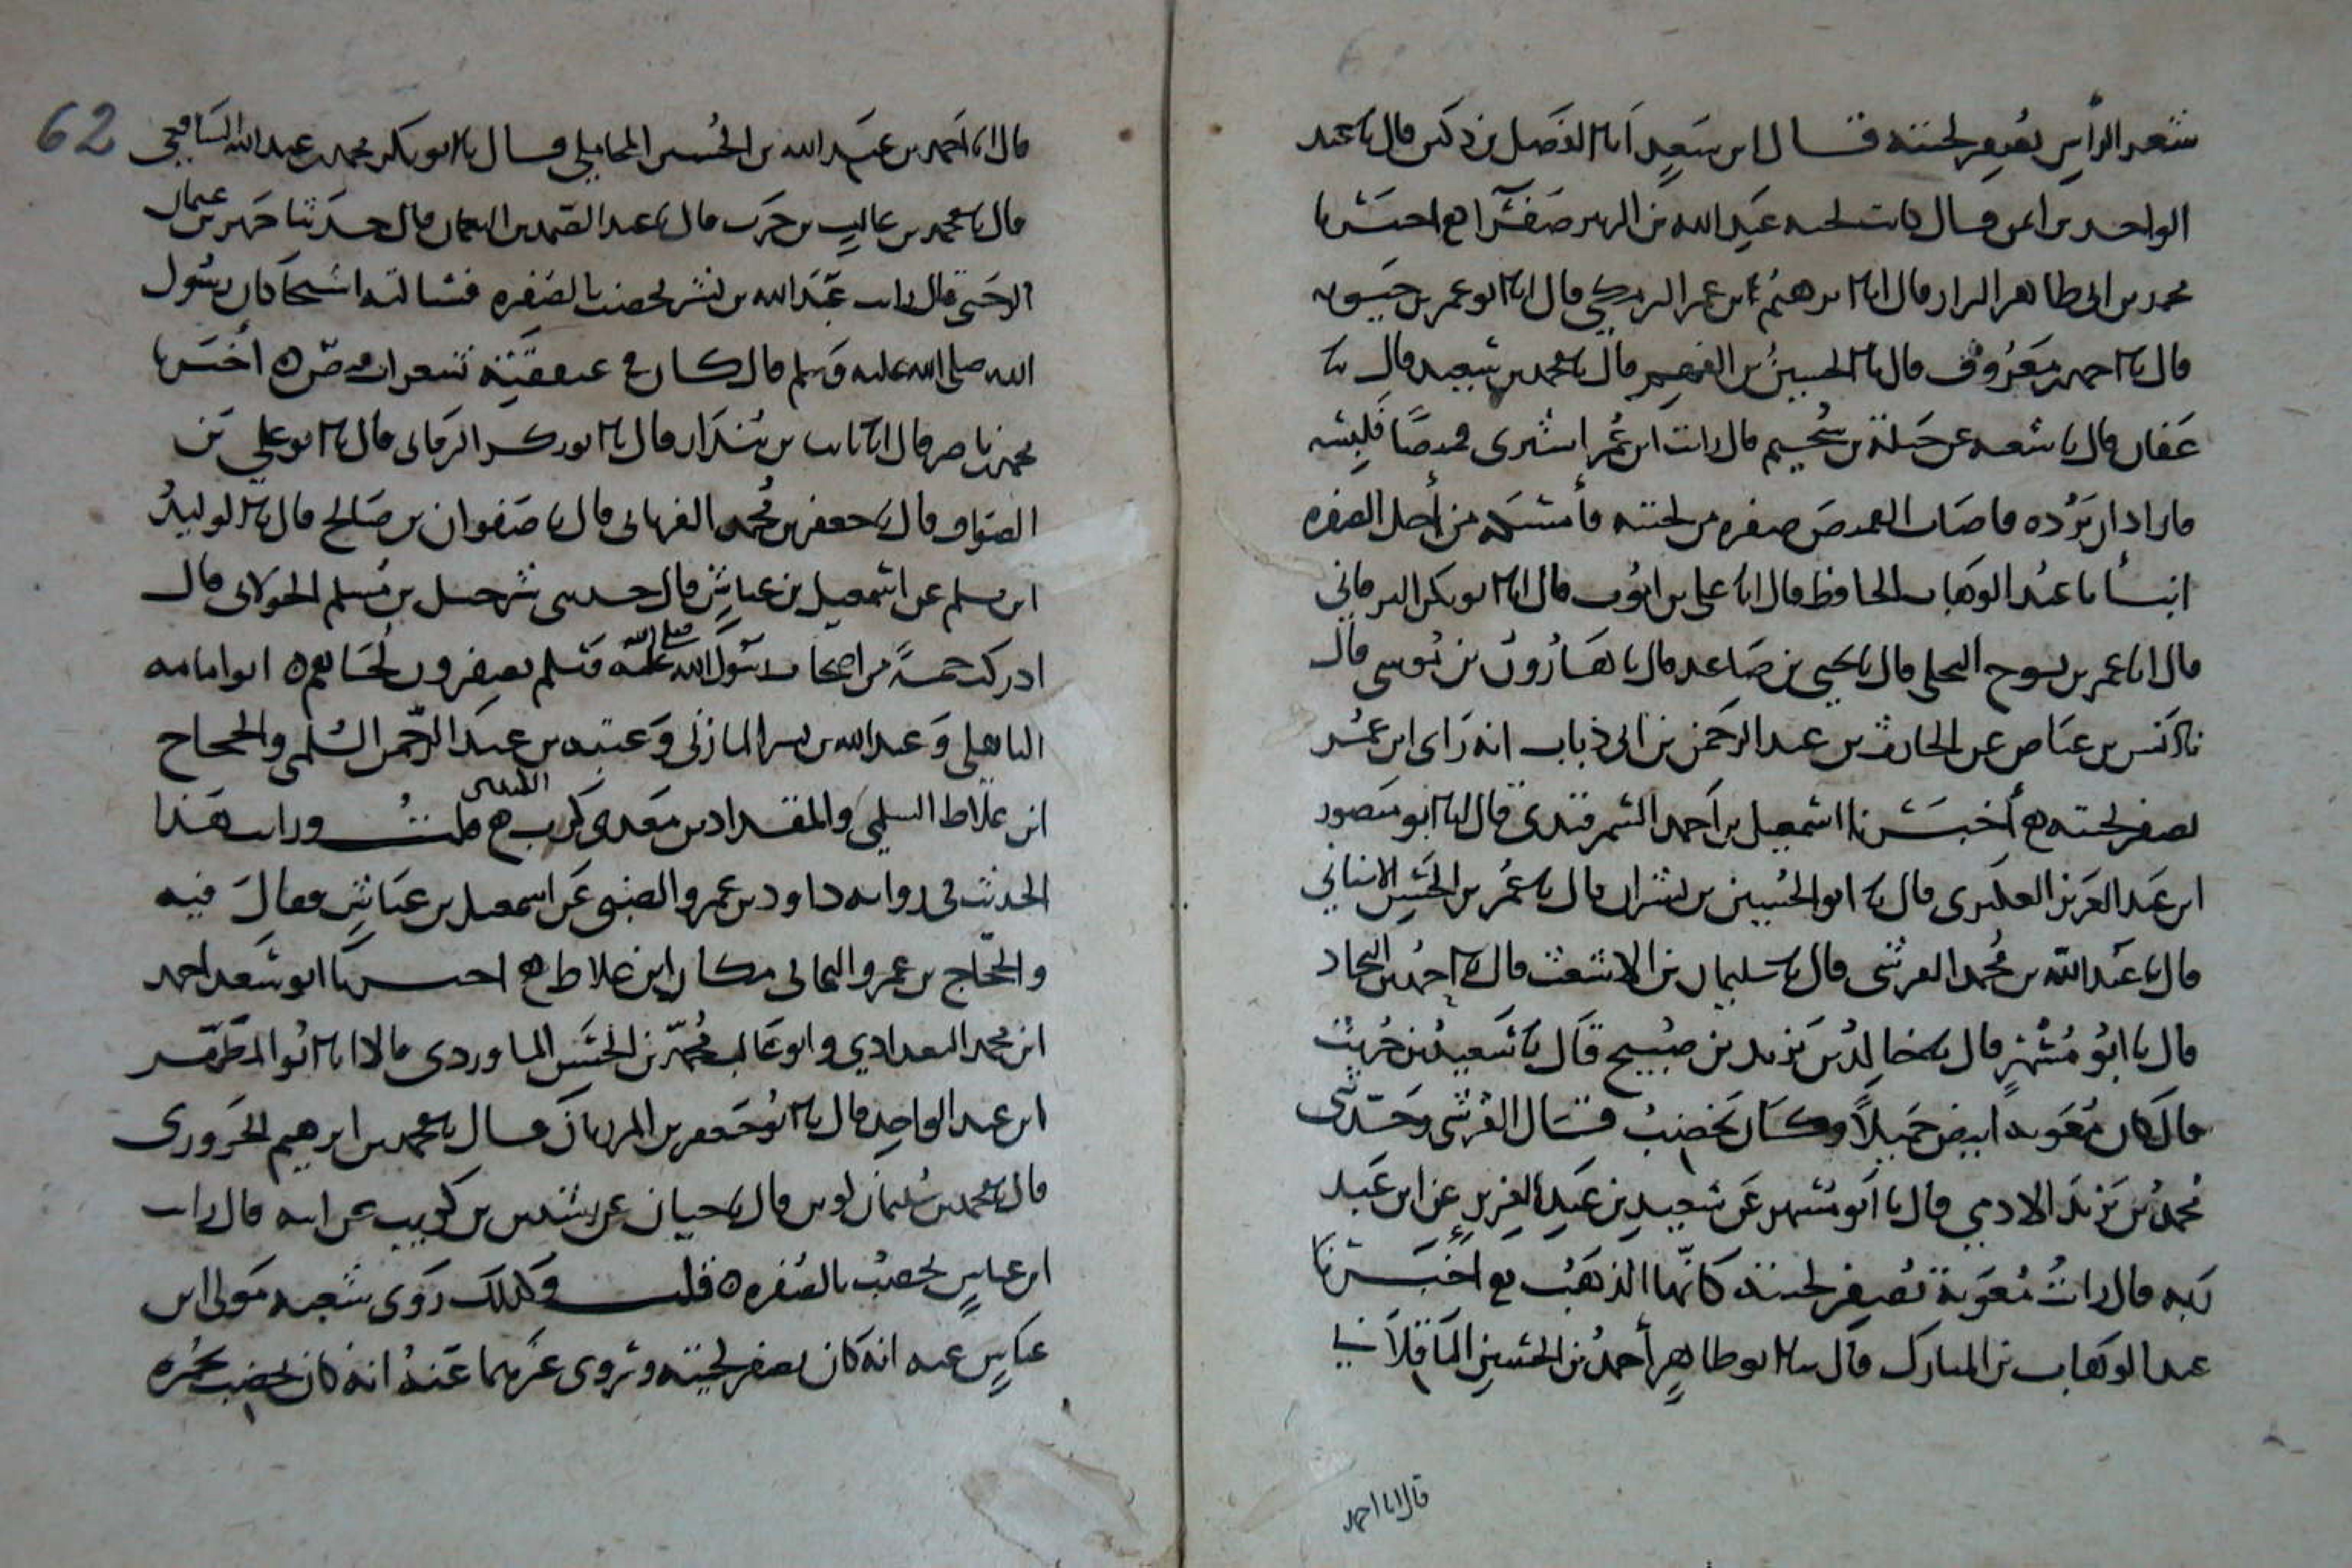 شعر الرأس يصفر لحيته قال ابن سعد انا الفضل بن دكين قال نا عبد
الواحد بن ايمن قال كانت لحية عبد الله بن الزبير صفرا اخبرنا
محمد بن ابي طاهر البزاز قال انا ابرهيم بن عمر البرمكي قال انا ابو عمر بن حيويه
قال نا احمد بن معروف قال نا الحسين بن الفهم قال نا محمد بن سعد قال نا
عفان قال نا شعبة عن جبلة بن سحيم قال رايت ابن عمر اشترى قميصا فلبسه
فاراد ان يرده فاصاب القميص صفرة من لحيته فأمسكه من أجل الصفرة
انبأنا عبد الوهاب الحافظ قال انا علي بن ايوب قال انا ابو بكر البرقاني
قال انا عمر بن نوح البجلي قال نا يحيى بن صاعد قال نا هارون بن موسى قال
نا انس بن عياض عن الحارث بن عبد الرحمن بن ابي ذباب انه راى ابن عمر
يصفر لحيته أخبرنا اسمعيل بن احمد السمرقندي قال انا ابو منصور
ابن عبد العزيز العكبري قال نا ابو الحسين بن بشران قال نا عمر بن الحسن الاشناني
قال نا عبد الله بن محمد القرشي قال نا سليمان بن الاشعث قال نا احمد بن
قال نا ابو مسهر قال نا خالد بن يزيد بن صبيح قال نا سعيد بن حريث
قال كان معوية ابيض جميلا وكان يخضب قال القرشي وحدثني
محمد بن يزيد الادمي قال نا ابو مسهر عن سعيد بن عبد العزيز عن ابن عبد
ربه قال رايت معوية يصفر لحيته كانها الذهب اخبرنا
عبد الوهاب بن المبارك قال نا ابو طاهر أحمد بن الحسين الباقلاني
قال انا احمد
62
قال انا احمد بن عبد الله بن الحسين المحاملي قال نا ابو بكر محمد بن عبد الله الشافعي
قال نا محمد بن غالب بن حرب قال نا عبد الصمد بن النعمان قال حدثنا حريز بن عثمان
الرحبي قال رايت عبد الله بن بسر يخضب بالصفرة فسالته اشيخا كان رسول
الله صلى الله عليه وسلم قال كان في عنفقته شعرات أخبرنا
محمد بن ناصر قال انا ثابت بن بندار قال نا ابو بكر البرقاني قال نا ابو علي بن
الصواف قال نا جعفر بن محمد الفريابي قال نا صفوان بن صالح قال نا الوليد
ابن مسلم عن اسمعيل بن عياش قال حدثني شرحبيل بن مسلم الخولاني قال
ادركت خمسة من اصحاب رسول الله صلى الله عليه وسلم يصفرون لحاهم ابو امامة
الباهلي وعبد الله بن بسر المازني وعتبة بن عبد الرحمن السلمي والحجاج
ابن علاط السلمي والمقداد بن معدي كرب الكندي قلت ورايت هذا
الحديث في رواية داود بن عمرو الضبي عن اسمعيل بن عياش فقال فيه
والحجاج بن عمرو الثمالي مكان ابن علاط اخبرنا ابو سعد احمد
ابن محمد البغدادي وابو غالب محمد بن الحسن الماوردي قالا انا ابو المظفر
ابن عبد الواحد قال نا ابو جعفر بن المرزبان قال نا محمد بن ابرهيم الحزوري
قال نا محمد بن سليمان لوين قال نا حبان عن رشدين بن كريب عن ابيه قال رايت
ابن عباس يخضب بالصفرة قلت وكذلك روى شعبة مولى ابن
عباس عنه انه كان يصفر لحيته وروى غيرهما عنه انه كان يخضب بحمرة